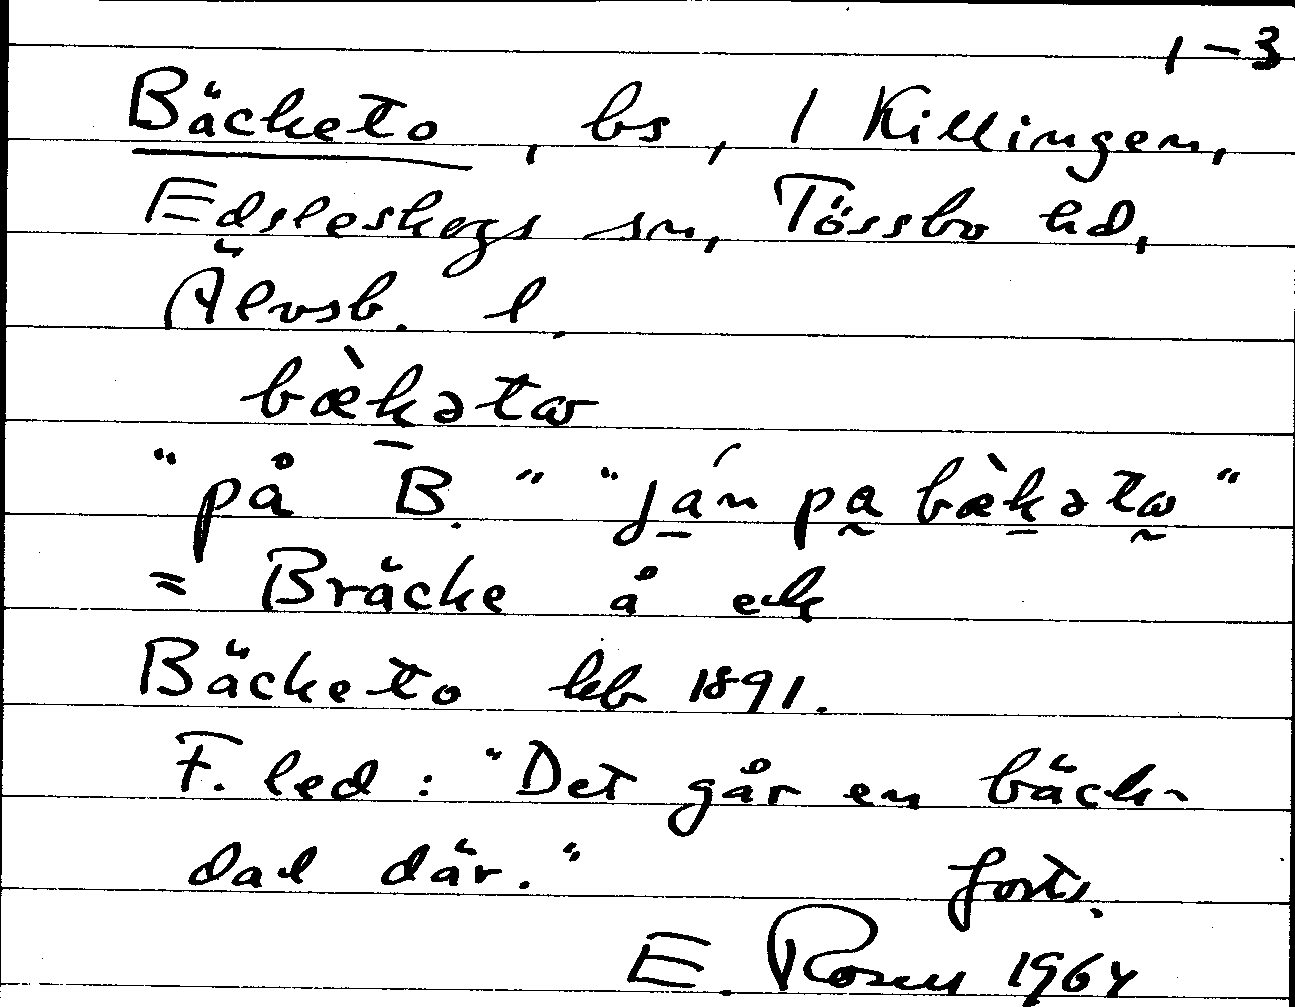 1-3
Bäcketo, bs, 1 Killingen,
Edsleskogs sn, Tössbo hd,
Älvsb. l.
bæ̀kətω
"på B." "ján pa bæ̀kətω"
= Bräcke å ek
Bäcketo kb 1891.
F. led: "Det går en bäck-
dal där." forts.
E. Rosell 1964